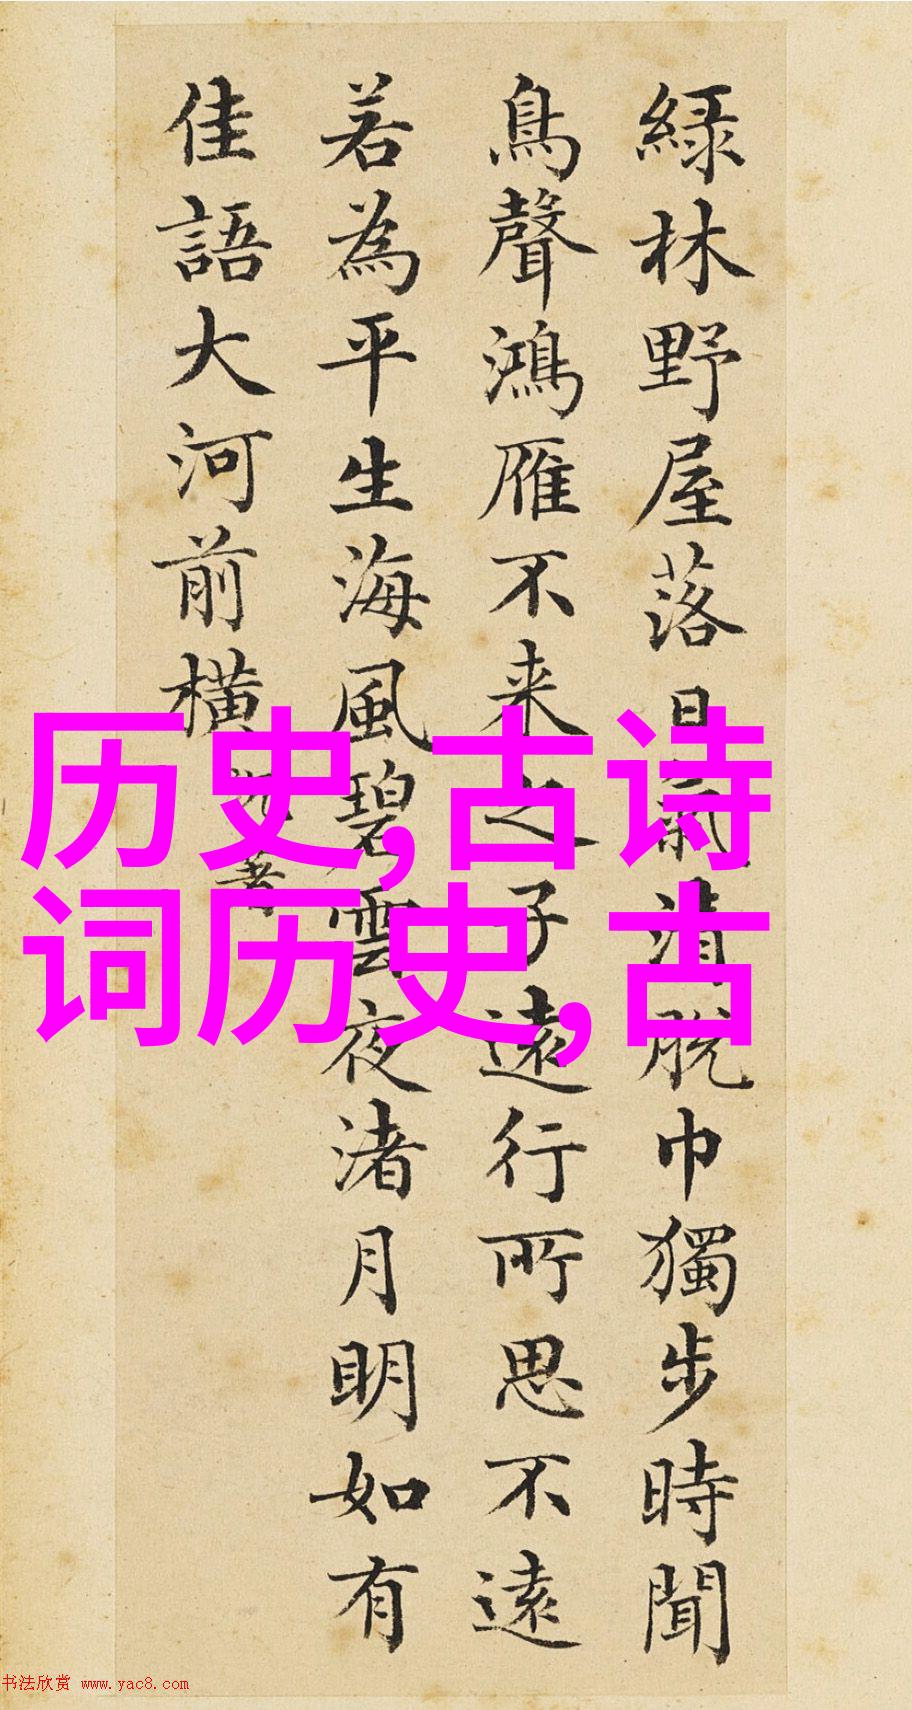 緑林野屋落日氣清脫巾獨步時聞
鳥聲鴻雁不来之子遠行所思不遠
若為平生海風碧雲夜渚月明如有
佳語大河前橫
历史,古诗
词历史,古
书法欣赏 www.yac8.com